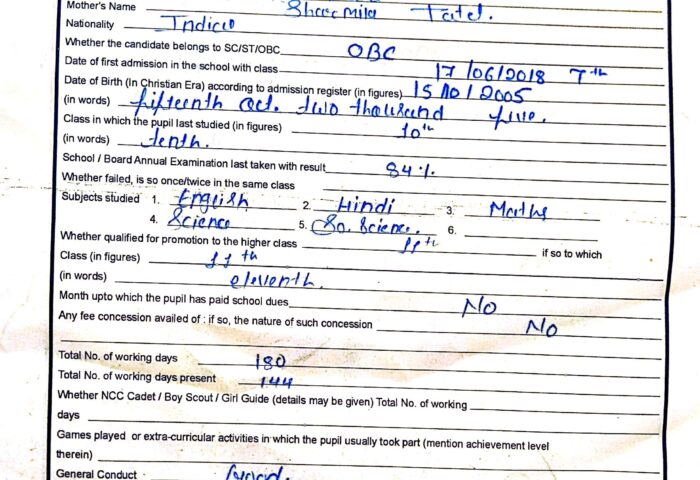 Mother's Name Sharmila Patel.
Nationality Indian
Whether the candidate belongs to SC/ST/OBC OBC
Date of first admission in the school with class 17/06/2018 7th
Date of Birth (In Christian Era) according to admission register (in figures) 15/10/2005
(in words) fifteenth oct. two thousand five.
Class in which the pupil last studied (in figures) 10th
(in words) tenth.
School / Board Annual Examination last taken with result 84%
Whether failed, is so once/twice in the same class
Subjects studied 1. English 2. Hindi 3. Maths
4. Science 5. So. Science. 6.
Whether qualified for promotion to the higher class 11th if so to which
Class (in figures) 11th
(in words) eleventh.
Month upto which the pupil has paid school dues No
Any fee concession availed of : if so, the nature of such concession No
Total No. of working days 180
Total No. of working days present 144
Whether NCC Cadet / Boy Scout / Girl Guide (details may be given) Total No. of working
days
Games played or extra-curricular activities in which the pupil usually took part (mention achievement level
therein)
General Conduct Good.